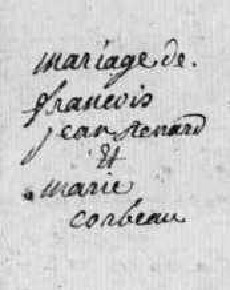 mariage de.
francois
jean Renard
Et
marie
corbeau